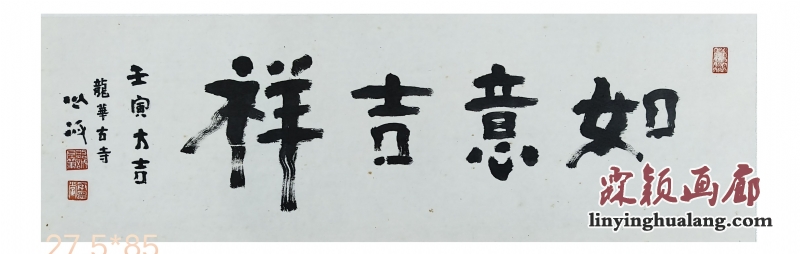 如意吉祥
壬寅大吉
龍華古寺
霖颖画廊
linyinghualang.com
27.5*85